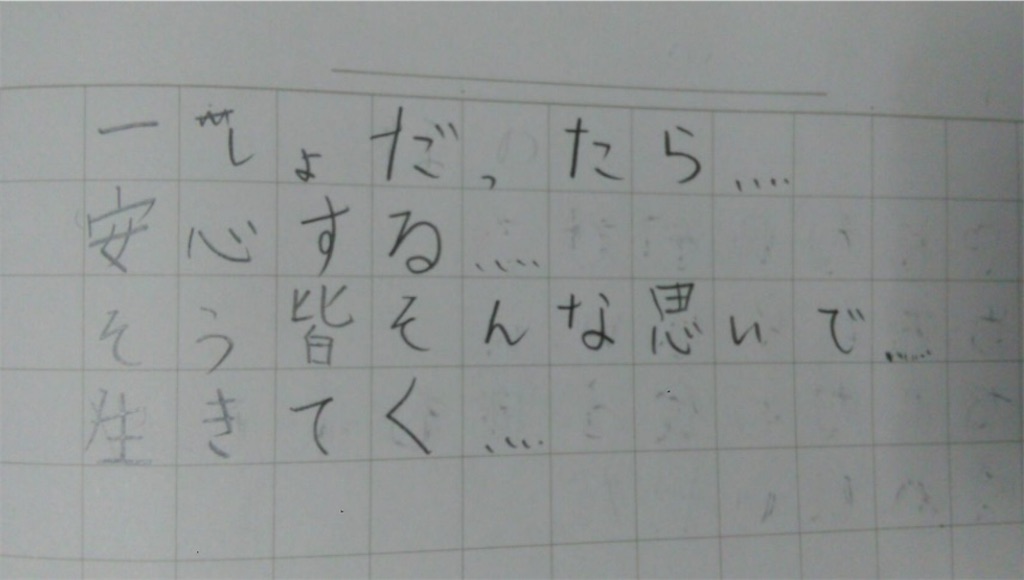 一しょだったら....
安心する....
そう皆そんな思いで.....
生きてく....